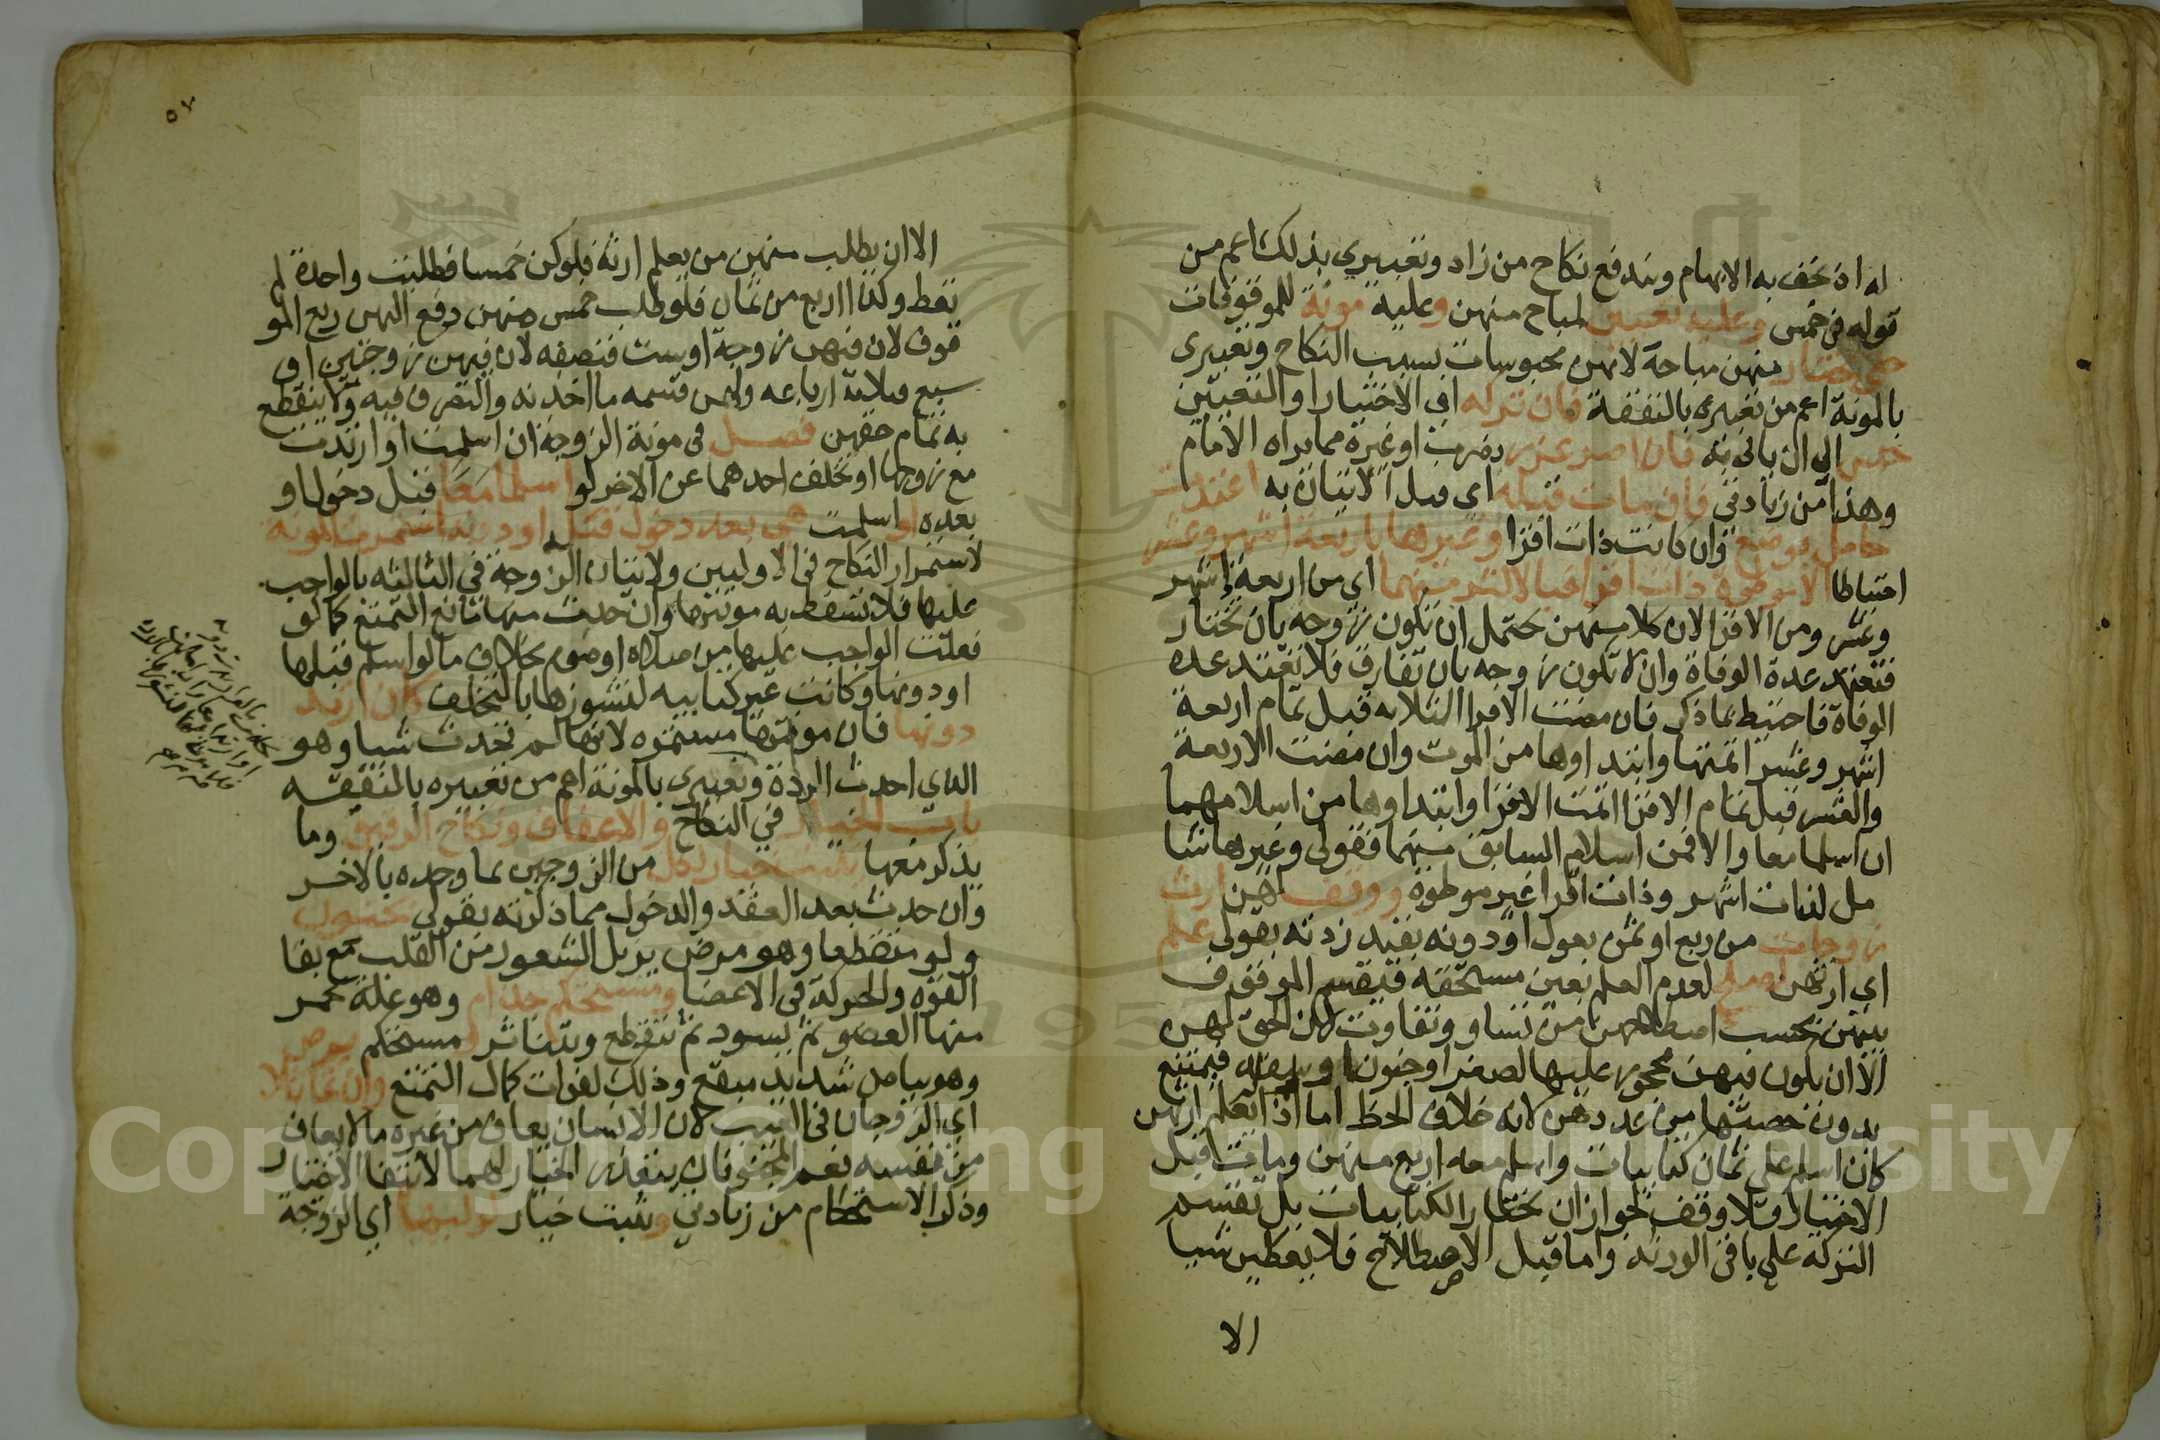 له اذ يخف به الابهام ويندفع نكاح من زاد وتعبيري بذلك اعم من
قوله في خمس وعليه تعيين لمباح منهن وعليه مونة للموقوفات
حتى يختار منهن مباحه لانهن محبوسات بسبب النكاح وتعبيري
بالمونة اعم من تعبيره بالنفقة فان تركه اي الاختيار او التعيين
حبس الى ان ياتي به فان اصر عزر بضرب او غيره مما يراه الامام
وهذا من زيادتي فان مات قبله اي قبل الاتيان به اعتدت
حامل بوضع وان كانت ذات اقرا وغيرها باربعة اشهر وعشر
احتياطا الا موطوة ذات اقرا فبالاكثر منهما اي من اربعة اشهر
وعشر ومن الاقرا لان كلا منهن يحتمل ان تكون زوجه بان تختار
فتعتد عدة الوفاة وان لا تكون زوجه بان تفارق فلا تعتد عدة
الوفاة فاحتيط بما ذكر فان مضت الاقرا الثلاثه قبل تمام اربعة
اشهر وعشر اتمتها وابتداوها من الموت وان مضت الاربعة
والعشر قبل تمام الاقرا اتمت الاقرا وابتداوها من اسلامهما
ان اسلما معا والا فمن اسلام السابق منهما فقولي وغيرها شا
مل لذات اشهر وذات اقرا غير موطوة ووقف لهن ارث
زوجات من ربع او ثمن بعول او دونه بقيد زدته بقولي علم
اي ارثهن لصلح لعدم العلم بعين مستحقه فيقسم الموقوف
بينهن بحسب اصطلاحهن من تساو وتفاوت لان الحق لهن
الا ان يكون فيهن محجور عليها لصغر او جنون او سفه فيمتنع
بدون حصتها من عددهن لانه خلاف الحظ اما اذا لم يعلم ارثهن
كان اسلم على ثمان كتابيات واسلم معه اربع منهن ومات قبل
الاختيار فلا وقف لجواز ان يختار الكتابيات بل تقسم
التركة على باقي الورثة واما قبل الاصطلاح فلا يعطين شيا
الا
٥٧
الا ان يطلب منهن من يعلم ارثه فلو كن خمسا فطلبت واحدة لم
تعط وكذا اربع من ثمان فلو طلب خمس منهن دفع اليهن ربع المو
قوف لان فيهن زوجة او ست فنصفه لان فيهن زوجتين او
سبع فثلاثة ارباعه ولهن قسمه ما اخذنه والتصرف فيه ولا ينقطع
به تمام حقهن فصل في مونة الزوجة ان اسلمت او ارتدت
مع زوجها او تخلف احدهما عن الاخر لو اسلما معا قبل دخول او
بعده او اسلمت هي بعد دخول قبله او دونه استمرت المونة
لاستمرار النكاح في الاوليين ولاتيان الزوجة في الثالثه بالواجب
عليها فلا تسقط به مونتها وان حدث منها مانع التمتع كما لو
فعلت الواجب عليها من صلاة او صوم بخلاف ما لو اسلم قبلها
او دونها وكانت غير كتابيه لنشوزها بالتخلف كان ارتد
دونها فان مونتها مستمره لانها لم تحدث شيا وهو
الذي احدث الردة وتعبيري بالمونة اعم من تعبيره بالنفقه
باب الخيار في النكاح والاعفاف ونكاح الرقيق وما
يذكر معها يثبت خيار لكل من الزوجين بما وجده بالاخر
وان حدث بعد العقد والدخول مما ذكرته بقولي بجنون
ولو متقطعا وهو مرض يزيل الشعور من القلب مع بقا
القوه والحركة في الاعضا ومستحكم جذام وهو علة يحمر
منها العضو ثم يسود ثم يتقطع ويتناثر ومستحكم برص
وهو بياض شديد مبقع وذلك لفوات كمال التمتع وان تماثلا
اي الزوجان في العيب لان الانسان يعاف من غيره ما لا يعاف
من نفسه نعم المجنونان يتعذر الخيار لهما لانتفا الاختيار
وذكر الاستحكام من زيادتي ويثبت خيار لوليها اي الزوجة